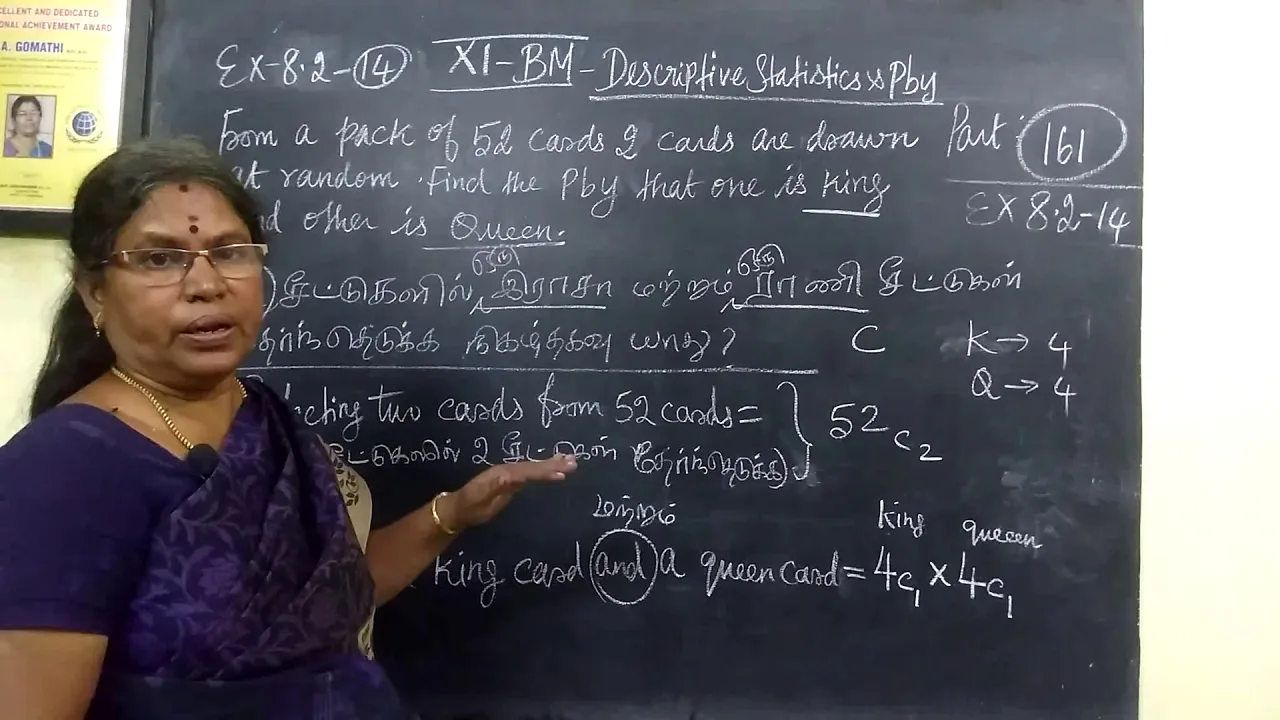 CELLENT AND DEDICATED
ONAL ACHIEVEMENT AWARD
A. GOMATHI
Ex-8.2-14 XI-BM-Descriptive Statistics & Pby
From a pack of 52 cards 2 cards are drawn
at random. Find the Pby that one is King
nd other is Queen.
Part: 161
EX 8.2-14
ஒரு ஒரு
) சீட்டுகளில் இராசா மற்றும் ராணி சீட்டுகள்
தேர்ந்தெடுக்க நிகழ்தகவு யாது?
C K→4
Q→4
lecting two cards from 52 cards = } 52c2
ட்டுகளில் 2 சீட்டுகள் தேர்ந்தெடுக்க)
மற்றும்
king queeen
King card and a queen card = 4c1 × 4c1